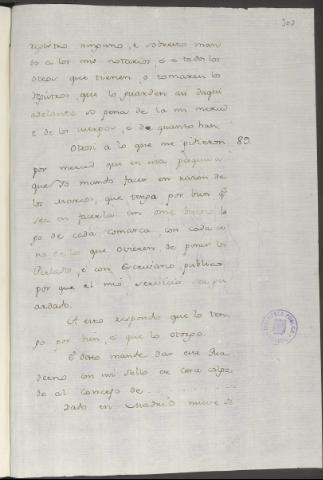 303
registro ninguno, e sobresto man
do a los mis notarios, e a todos los
otros que tienen, o tomaren los
registros, que lo guarden asi daqui
adelante so pena de la mi merced
e de los cuerpos, e de quanto han.
Otrosi a lo que me pidieron 89.
por merced que en esta pesquisa
que Yo mando facer en razon de
los que tenga por bien q
sea en facerla un ome bueno le
go de cada comarca con cada u
no de lo que ovieren de poner los
Perlados, e con Escrivano publico
por que el mio servicio sea
ardado.
A esto respondo que lo ten
go por bien, e que lo otorgo.
E desto mande dar este qua
derno con mi sello de cera colga
do al concejo de . . . . . .
Dado en Madrid nueve d